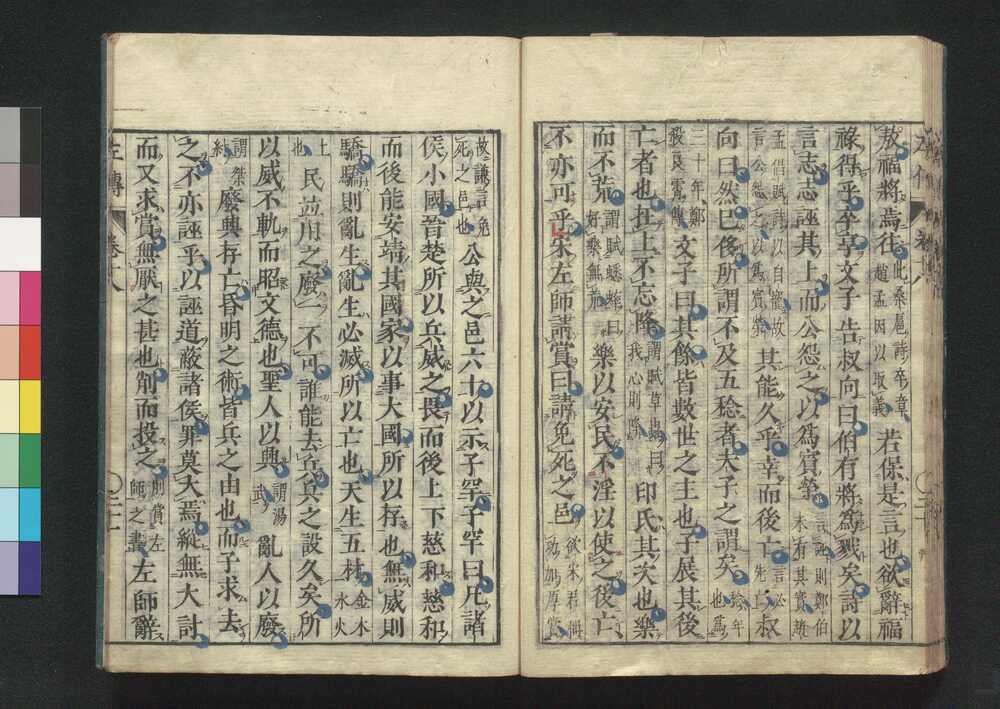 敖福將焉往此桑扈詩卒章趙孟因以取義若保是言也欲辭福
祿得乎卒享文子告叔向曰伯有將爲戮矣詩以
言志志誣其上而公怨之以爲賓榮言誣則鄭伯未有其實趙
孟倡賦詩以自寵故言公怨之以爲賓榮其能久乎幸而後亡言必先亡叔
向曰然已侈所謂不及五稔者夫子之謂矣稔年也爲
三十年鄭殺良霄傳文子曰其餘皆數世之主也子展其後
亡者也在上不忘降謂賦草蟲曰我心則降印氏其次也樂
而不荒謂賦蟋蟀曰好樂無荒樂以安民不淫以使之後亡
不亦可乎宋左師請賞曰請免死之邑欲宋君稱功加厚賞
故謙言免死之邑也公與之邑六十以示子罕子罕曰凡諸
侯小國晉楚所以兵威之畏而後上下慈和慈和
而後能安靖其國家以事大國所以存也無威則
驕驕則亂生亂生必滅所以亡也天生五材金木水火
土也民並用之廢一不可誰能去兵兵之設久矣所
以威不軌而昭文德也聖人以興謂湯武亂人以廢
謂桀紂廢興存亡昏明之術皆兵之由也而子求去
之不亦誣乎以誣道蔽諸侯罪莫大焉縱無大討
而又求賞無厭之甚也削而投之削賞左師之書左師辭
左傳 卷十八